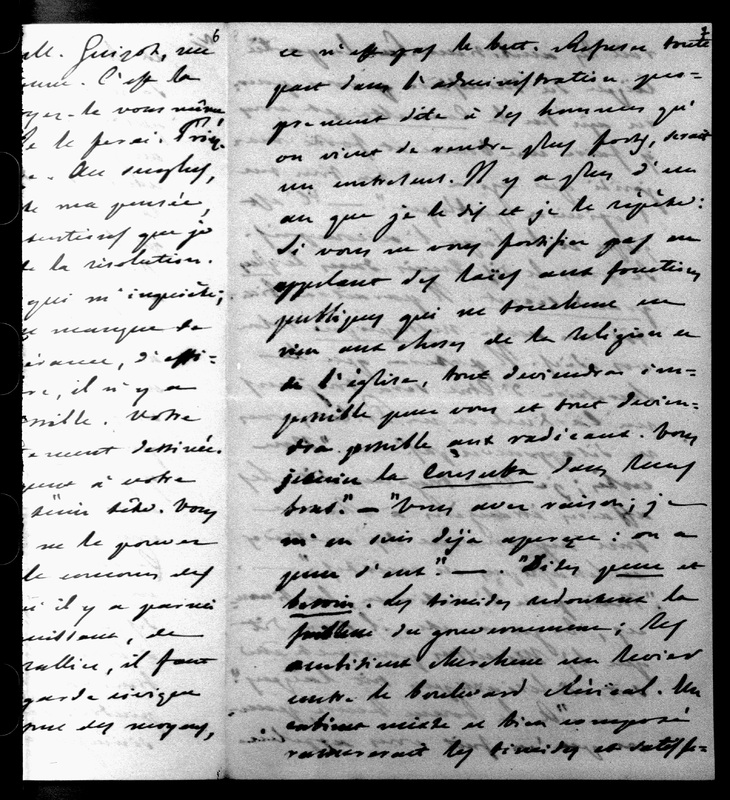 6
M. Guizot, une
C'est la
voyez-le vous même
Je le ferai. Priez
Au surplus,
de ma pensée,
que je
de la résolution.
qui m'inquiète;
manque de
il n'y a
Votre
dessinée.
à votre
tenir tête. Vous
ne le pouvez
le concours des
il y a parmi
de
rallier, il faut
garde civique
des moyens,
7
ce n'est pas le but. Refuser toute
part dans l'administration pro-
prement dite à des hommes qu'
on vient de rendre plus forts, serait
un contresens. Il y a plus d'un
an que je le dis et je le répète:
Si vous ne vous fortifiez pas en
appelant des laïcs aux fonctions
publiques qui ne touchent en
rien aux choses de la religion et
de l'église, tout deviendra im-
possible pour vous et tout devien-
dra possible aux radicaux. Vous
la Consulta dans leurs
bras." — "Vous avez raison; je
m'en suis déjà aperçu: on a
peur d'eux." —. "Dites peur et
besoin. Les timides redoutent la
faiblesse du gouvernement; les
ambitieux cherchent un levier
contre le boulevard clérical. Un
cabinet mixte et bien composé
ramènerait les timides et satisfe-